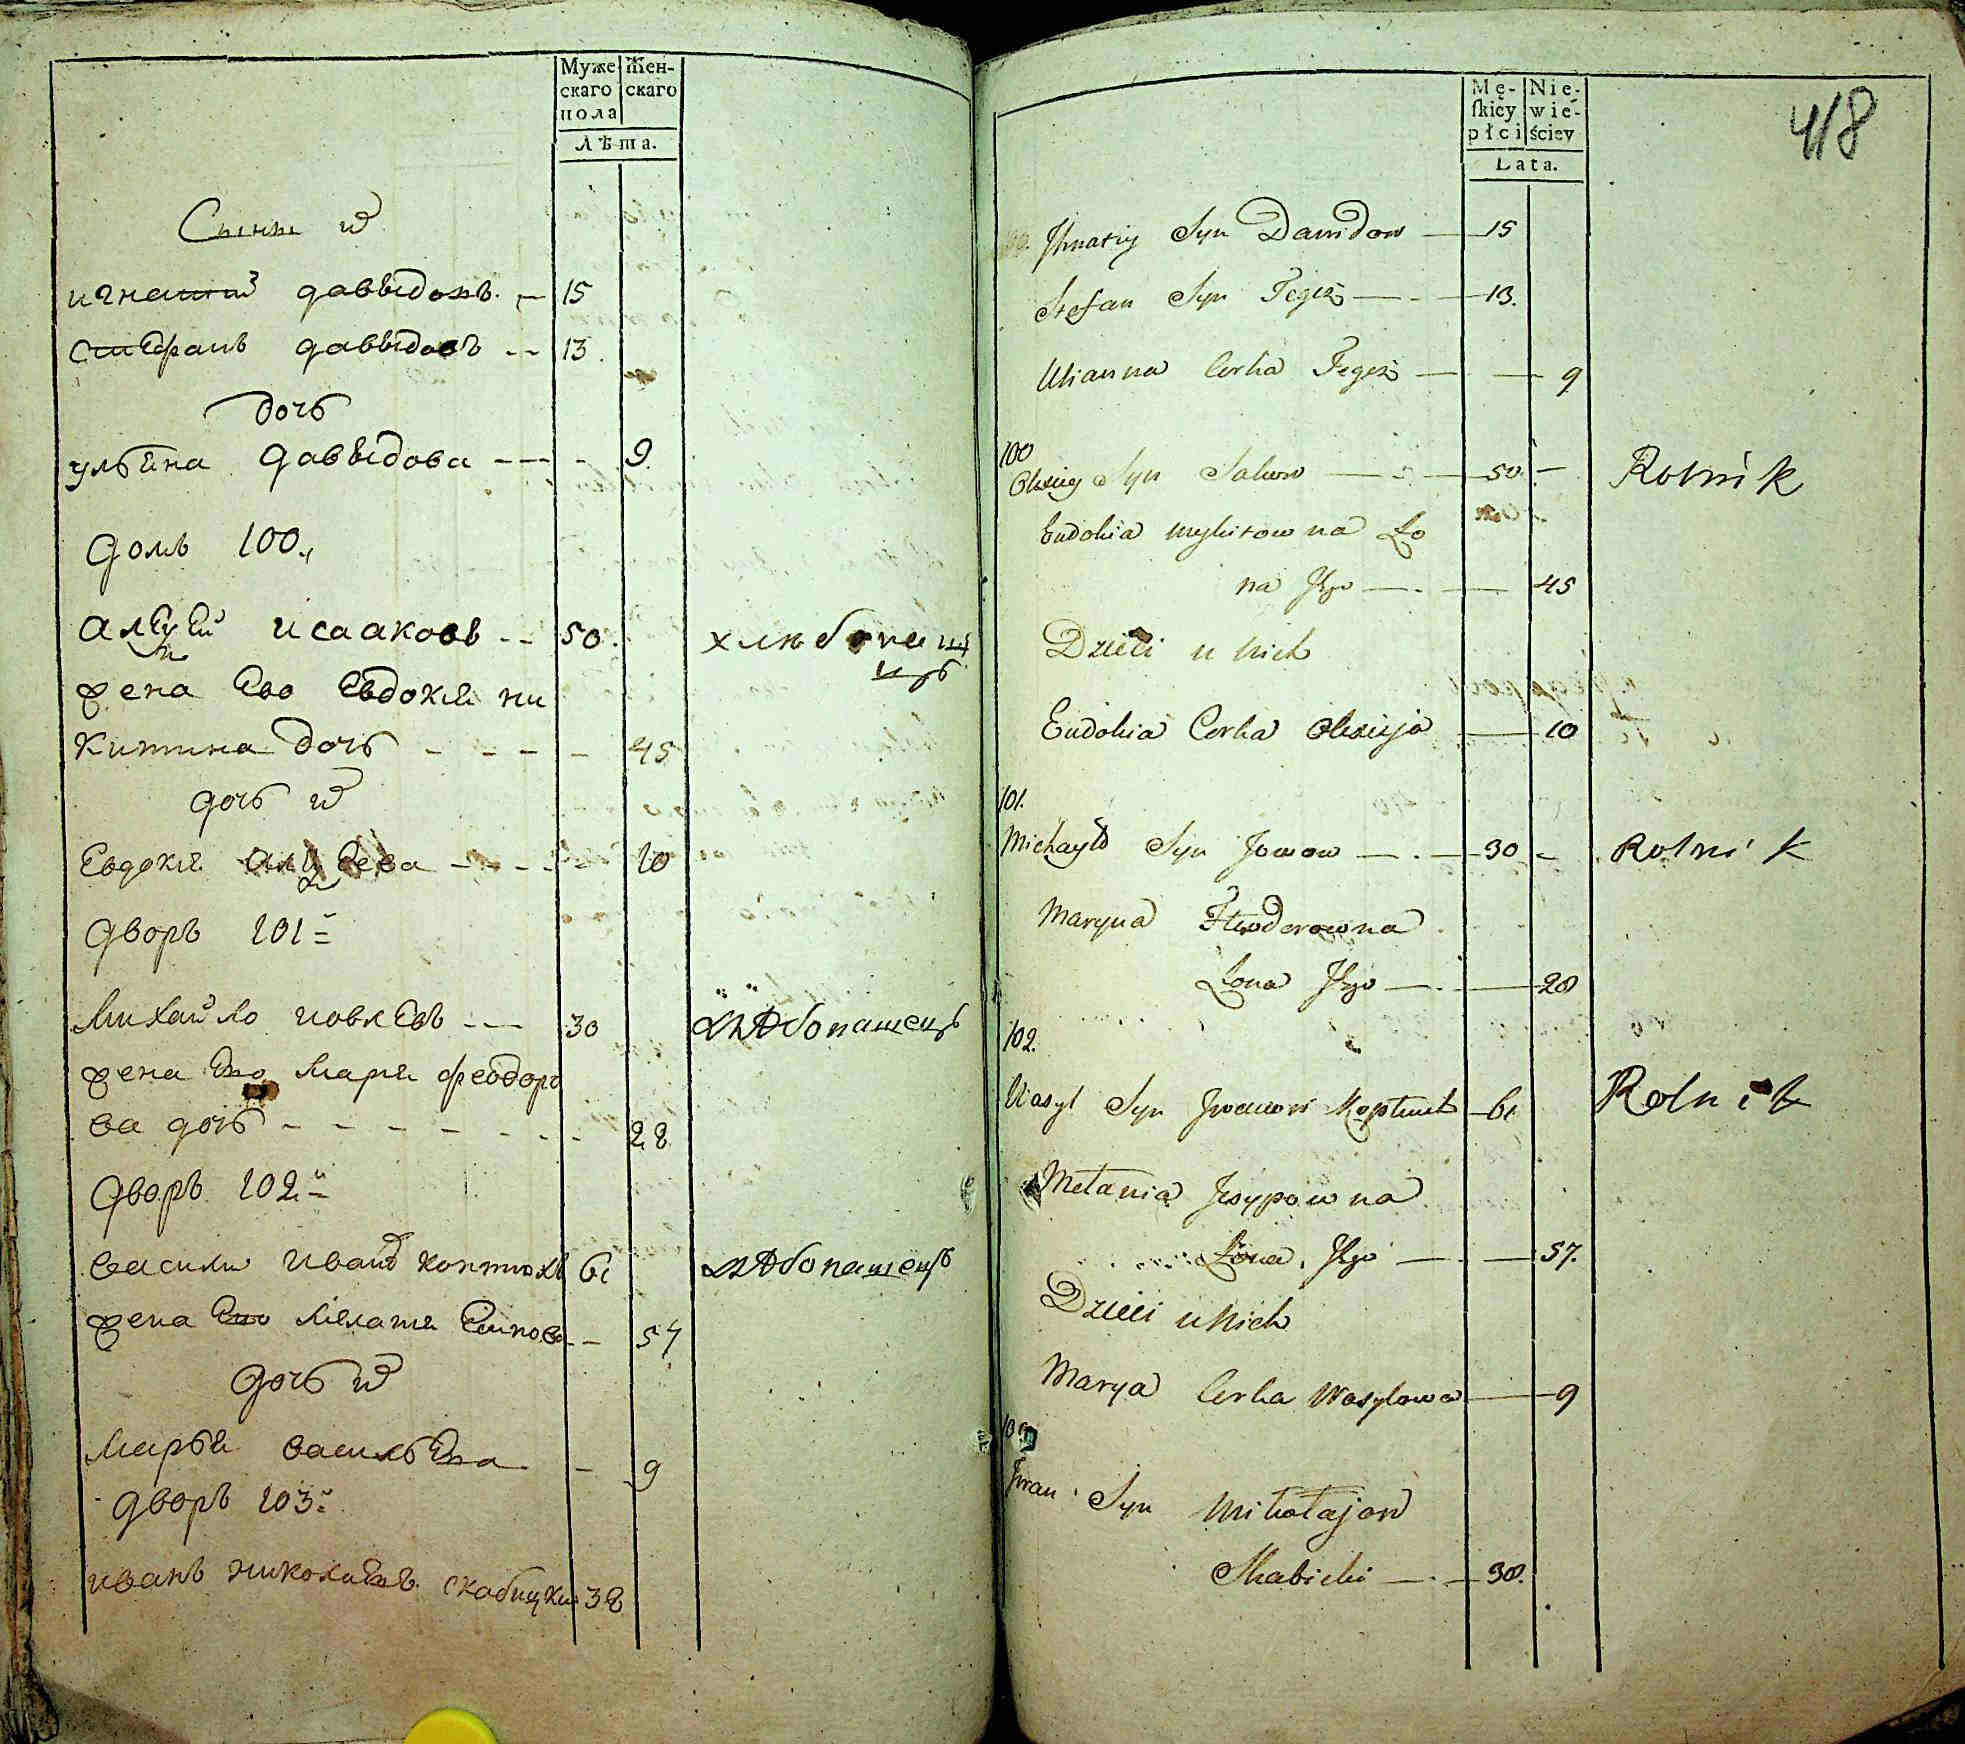 Муже-
скаго
пола
Жен-
скаго
Лѣта.
Сыны
игнатий давыдовъ. — 15
стефанъ давыдовъ -- 13.
дочь
ульяна давыдова --- - 9.
домъ 100.
алексей исааковъ -- 50. хлебопаш
жена ево Евдокия ни
китина дочь - - - - 45
дочь
Евдокия алексеева - - - 10
дворъ 101
Михайло иовлевъ --- 30 хлѣбопашецъ
жена ево Марья феодоро
ва дочь - - - - - - 28
дворъ 102
василий иванов коптюхъ 61 хлѣбопашецъ
жена ево Мелания Есипова - 57
дочь
Марья васильева - 9
дворъ 103
иванъ николаевъ скабицки 38
Mę-
ſkiey
płci
Nie-
wie-
ściey
Lata.
418
Jhnatiy Syn Dawidow — 15
Stefan Syn Tegoż — 13.
Ulianna Corka Tegoż — 9
100
Olexiey Syn Sakow — 50. — Rolnik
Eudokia Mykitowna Żo
na Jego — 45
Dzieci u Nich
Eudokia Corka Olexieja — 10
101.
Michayło Syn Jowow — 30 - Rolnik
Maryna Fteodorowna
Żona Jego — 28
102.
Wasyl Syn Jwanow — 61 Rolnik
Mełania Jesypowna
Żona Jego — 57.
Dzieci u Nich
Marya Corka Wasylowa — 9
Jwan Syn Mikołajow
Skabicki — 38.